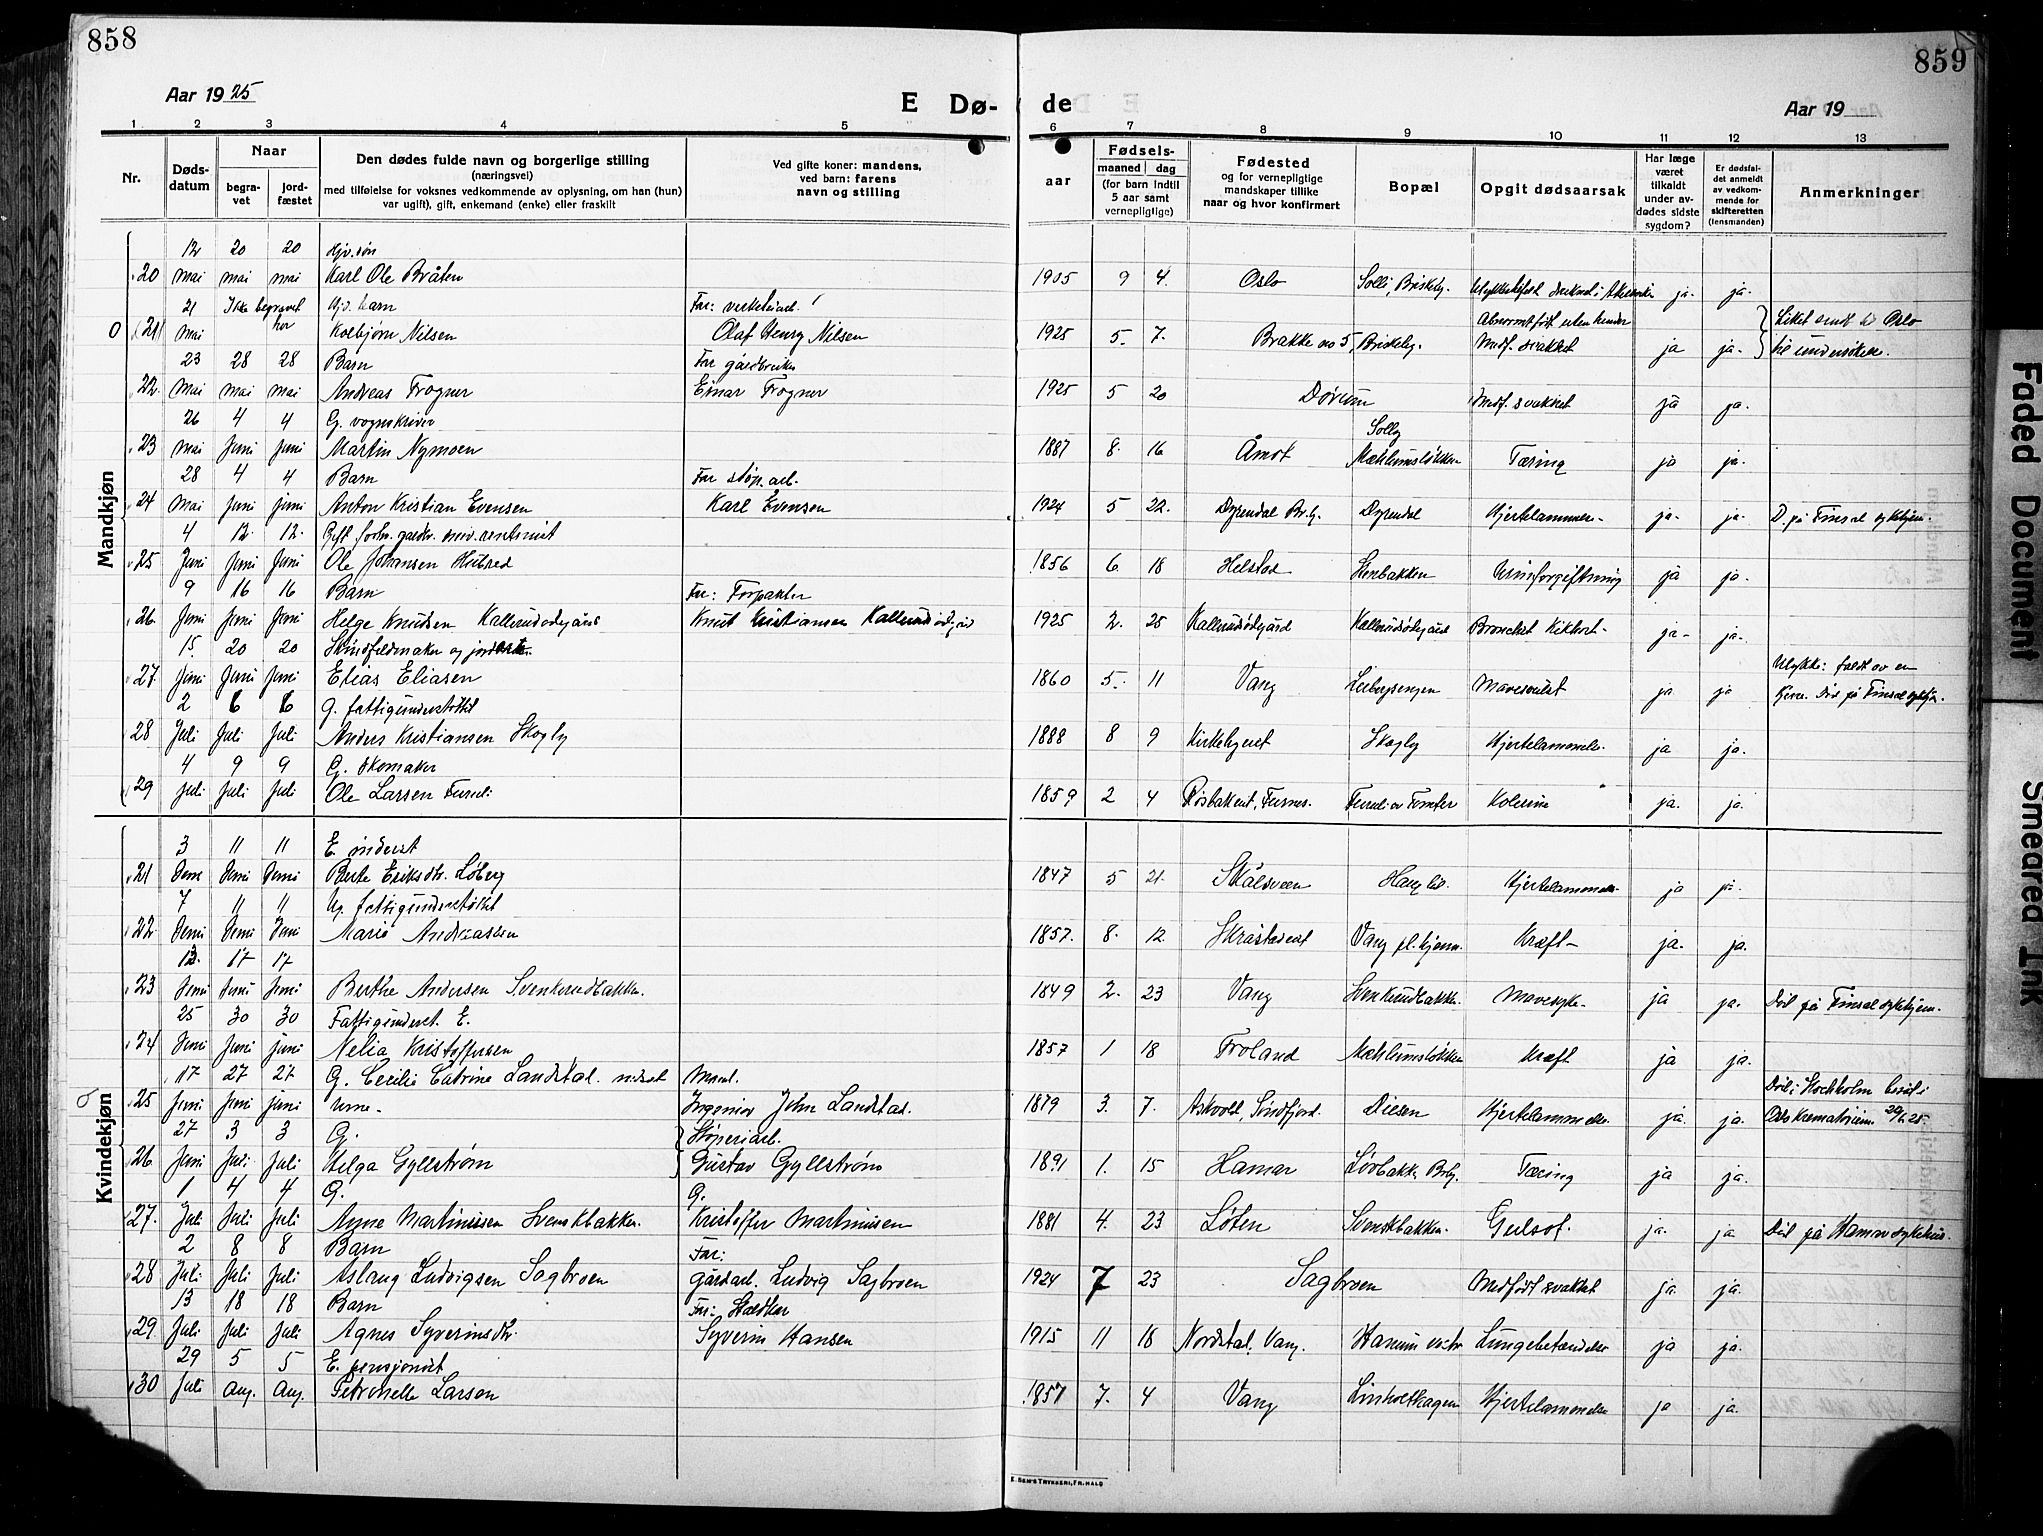 858
859
Aar 1925
E Dø-
de
Aar 19
1 2 3 4 5 6 7 8 9 10 11 12 13
Nr.
Døds-
datum
Naar
begra-
vet
jord-
fæstet
Den dødes fulde navn og borgerlige stilling
(næringsvei)
med tilføielse for voksnes vedkommende av oplysning, om han (hun)
var ugift), gift, enkemand (enke) eller fraskilt
Ved gifte koner: mandens,
ved barn: farens
navn og stilling
Fødsels-
aar
maaned dag
(for barn indtil
5 aar samt
vernepligtige)
Fødested
og for vernepligtige
mandskaper tillike
naar og hvor konfirmert
Bopæl
Opgit dødsaarsak
Har læge
været
tilkaldt
under av-
dødes sidste
sygdom?
Er dødsfal-
det anmeldt
av vedkom-
mende for
skifteretten
(lensmanden)
Anmerkninger
Mandkjøn
12 20 20 Hjv. søn
20 mai mai mai Karl Ole Bråten 1905 9 4. Oslo Solli, Briskeby. ja. ja.
21 Ikke begravet barn Far:
21 mai her Kolbjørn Nilsen Olaf Henry Nilsen 1925 5. 7. Brakke no 5, Briskeby. Medf. svakhet ja ja. Liket sendt til Oslo
til undersøkelse.
23 28 28 Barn Far gårdbruker
22. mai mai mai Andreas Frogner Einar Frogner 1925 5 20 Dørum Medf. svakhet ja ja.
26 4 4 G. vognskriver
23 mai Juni Juni Martin Nymoen 1887 8. 16 Åmot Solby Mæhlumsløkken Tæring ja ja.
28 4 4 Barn Far støp. arb.
24 mai Juni juni Anton Kristian Evensen Karl Evensen 1924 5 22. Dyrendal Br.by. Dyrendal Hjertelammelse. ja. ja. D. på Finsal sykehjem.
4 12. 12. Gift forh. gårdbr. rentenist
25 Juni Juni Juni Ole Johansen Hubred 1856 6. 18 Helstad Stenbakken Urinforgiftning ja ja.
9 16 16 Barn Far: Forpakter
26. Juni Juni Juni Helge Knudsen Kallerudødegård Knut Kristiansen Kallerudødegård 1925 2. 25 Kallerudødegård Kallerudødegård Bronchit Kikhoste ja ja.
15. 20 20 Skindfeldmaker og
27. Juni Juni Juni Elias Eliasen 1860 5. 11 Vang ja ja Ulykke: faldt av en
Død på Finsal sykehjem.
2 6 6 G. fattigunderstøttet
28 Juli Juli Juli Anders Kristiansen Skogly 1888 8 9 Kirkebyeiet Skogly Hjertelammelse. ja ja.
4 9 9 G. Skomaker
29 Juli Juli Juli Ole Larsen Furuli 1859 2 4 Røsbakeiet, Furnes. ja. ja.
Kvindekjøn
3 11 11 E. inderst
21 Juni Juni Juni Berte Eriksdtr. Løberg 1847 5 21. Skålsveen Hauglid. Hjertelammelse ja ja.
7 11 11 Ug. fattigunderstøttet
22. Juni Juni Juni Marie Andreassen 1857. 8. 12. Skrastadeiet Vang pl.hjem. Kræft ja. ja.
12. 17 17
23 Juni Juni Juni Berthe Andersen Svenkerudbakken. 1849 2. 23 Vang Svenkerudbakken. Mavesyke. ja ja. Død på Finsal sykehjem.
25 30 30 Fattigunderst. E.
24 Juni Juni juni Nelia Kristoffersen 1857 1 18 Froland Mæhlumsløkken Kræft ja ja.
17 27 27 G. Cecilie Catrine Landstad. Mand.
25 Juni Juni juni urne. Ingeniør John Landstad. 1879 3. 7. Askvold, Søndfjord. Disen Hjertelammelse. ja. ja. Død i Stockholm
Oslo Krematorium
27 3 3 G. Støperiarb.
26 Juni Juli Juli Helga Gyllstrøm Gustav Gyllstrøm 1891 1. 15 Hamar Løvbakk. Brby. Tæring ja ja.
1 4 4 G. G.
27. Juli Juli Juli Anne Martinussen Svenskbakken. Kristoffer Martinussen 1881 4. 23 Løten Svenskbakken. Gulsot. ja. ja Død på Hamar sykehus.
2 8 8 Barn Far:
28 Juli Juli Juli Aslaug Ludvigsen Sagbroen gårdarb. Ludvig Sagbroen 1924 7 23 Sagbroen Medfødt svakhet ja ja.
13 18 18 Barn Far:
29. Juli Juli Juli Agnes Syverinsdtr. Syverin Hansen 1915 11 18 Nordstad, Vang. Lungebetændelse ja ja.
29 5 5 E. pensjonist
30 Juli Aug. Aug. Petronelle Larsen 1857 7. 4 Vang Hjertelammelse ja ja.
Faded Document
Smeared Ink